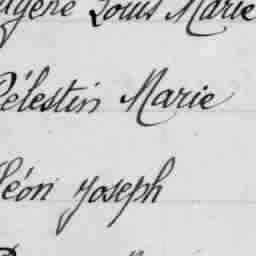 Louis Marie
Célestin Marie
Léon Joseph